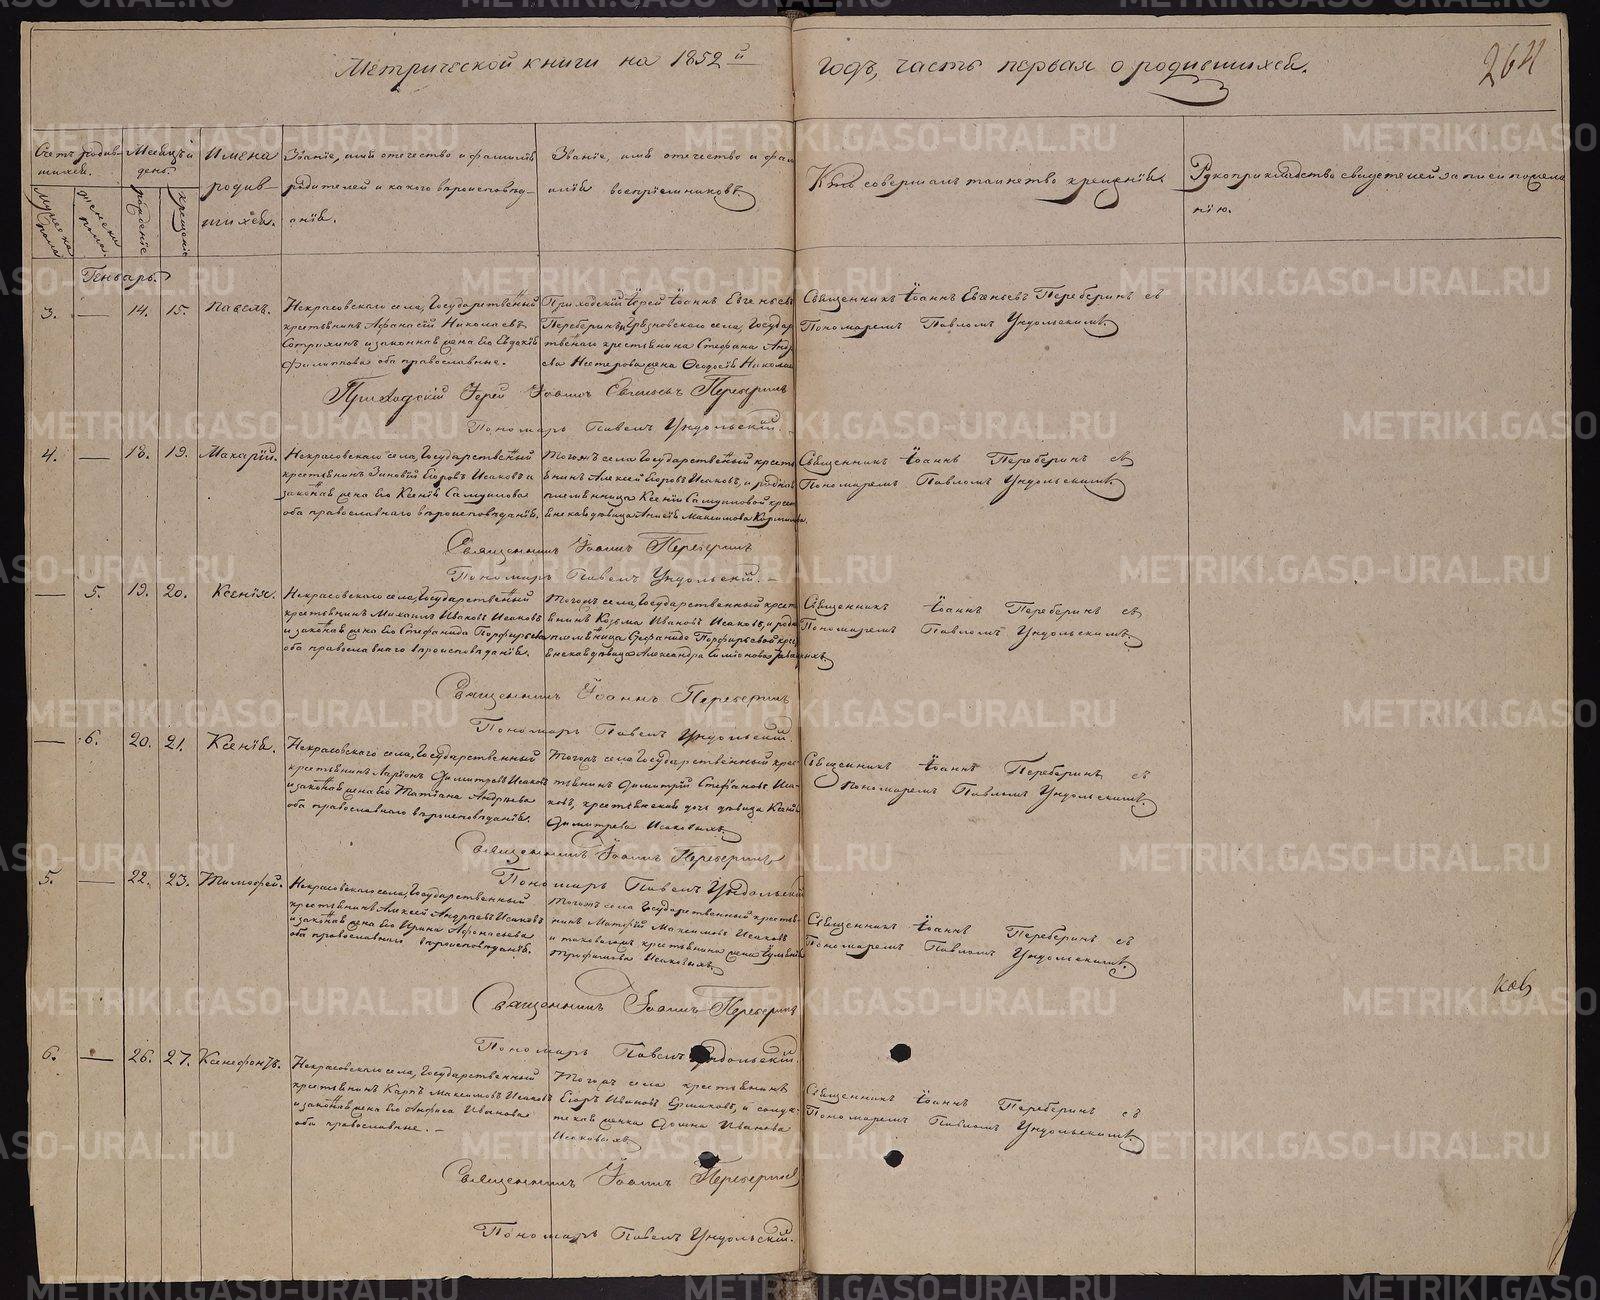 Метрической книги на 1852й годъ, часть первая о родившихся.
264
Счетъ родив-
шихся.
Мужеска пола
Женска пола.
Месяцъ и
день.
рожденіе
крещеніе
Имена
родив-
шихся.
Званіе, имя отечество и фамилія
родителей и какого вѣроисповѣд-
анія.
Званіе, имя отечество и фам
илія воспріемниковъ
Кто совершалъ таинство крещенія.
Рукоприкладство свидетелей записи по жела
нію.
Генварь.
3. — 14. 15. Павелъ.
Некрасовскаго села, Государственный
крестьянинъ Афанасій Николаевъ
и законная жена его Евдокія
Филипова оба православные.
Приходскій Іерей Іоаннъ Евгеньевъ
Переберинъ, села, Государ
твеннаго крестьянина Стефана Андр
ева Нестерова жена Феодосія Никола
Священникъ Іоаннъ Евгеньевъ Переберинъ съ
Пономаремъ Павломъ Ундольскимъ.
Приходскій Іерей Іоаннъ Евгеньевъ Переберинъ
Пономарь Павелъ Ундольскій.
4. — 18. 19. Макарій.
Некрасовскаго села, Государственный
крестьянинъ Зиновій Егоровъ Исаковъ и
законная жена его Ксенія Самуилова
оба православнаго вѣроисповѣданія.
Тогожъ села Государственный кресть
янинъ Алексей Егоровъ Исаковъ, и родная
племянница Ксеніи Самуиловой крест
янская дѣвица Анисія Максимова
Священникъ Іоаннъ Переберинъ съ
Пономаремъ Павломъ Ундольскимъ.
Священникъ Іоаннъ Переберинъ
Пономарь Павелъ Ундольскій. —
— 5. 19. 20. Ксенія.
Некрасовскаго села, Государственный
крестьянинъ Михаилъ Ивановъ Исаковъ
и законная жена его Стефанида Порфирьева
оба православнаго вѣроисповѣданія.
Тогожъ села, Государственный крест
янинъ Козьма Ивановъ Исаковъ, и родн
племянница Стефаниды Порфирьевой крес
янская дѣвица Александра Симіонова
Священникъ Іоаннъ Переберинъ съ
Пономаремъ Павломъ Ундольскимъ.
Священникъ Іоаннъ Переберинъ
Пономарь Павелъ Ундольскій.
— 6. 20. 21. Ксенія.
Некрасовскаго села, Государственный
крестьянинъ Ларіонъ Димитріевъ Исаковъ
и законная жена его Татіана Андреева
оба православнаго вѣроисповѣданія.
Тогожъ села Государственный крес
тьянинъ Димитрій Стефановъ Иса-
ковъ, крестьянская дочь дѣвица Ксенія
Димитрева Исаковыхъ
Священникъ Іоаннъ Переберинъ съ
Пономаремъ Павломъ Ундольскимъ.
Священникъ Іоаннъ Переберинъ
Пономарь Павелъ Ундольскій
5. — 22. 23. Тимофей.
Некрасовскаго села, Государственный
крестьянинъ Алексей Андреевъ Исаковъ
и законная жена его Ирина Афонасьева
оба православнаго вѣроисповѣданія.
Тогожъ села Государственный крестья-
нинъ Матфій Максимовъ Исаковъ
и таковагожъ крестьянина жена Іуліанія
Трофимова Исаковыхъ
Священникъ Іоаннъ Переберинъ съ
Пономаремъ Павломъ Ундольскимъ.
Священникъ Іоаннъ Переберинъ
Пономарь Павелъ Ундольскій.
6. — 26. 27. Ксенофонтъ.
Некрасовскаго села, Государственный
крестьянинъ Карпъ Максимовъ Исаковъ
и законная жена его Анфиса Иванова
оба православные. —
Тогожъ села крестьянинъ
Егоръ Ивановъ Ермаковъ, и
жена Домна Иванова
Исаковыхъ
Священникъ Іоаннъ Переберинъ съ
Пономаремъ Павломъ Ундольскимъ.
Священникъ Іоаннъ Переберинъ
Пономарь Павелъ Ундольскій.
METRIKI.GASO-URAL.RU